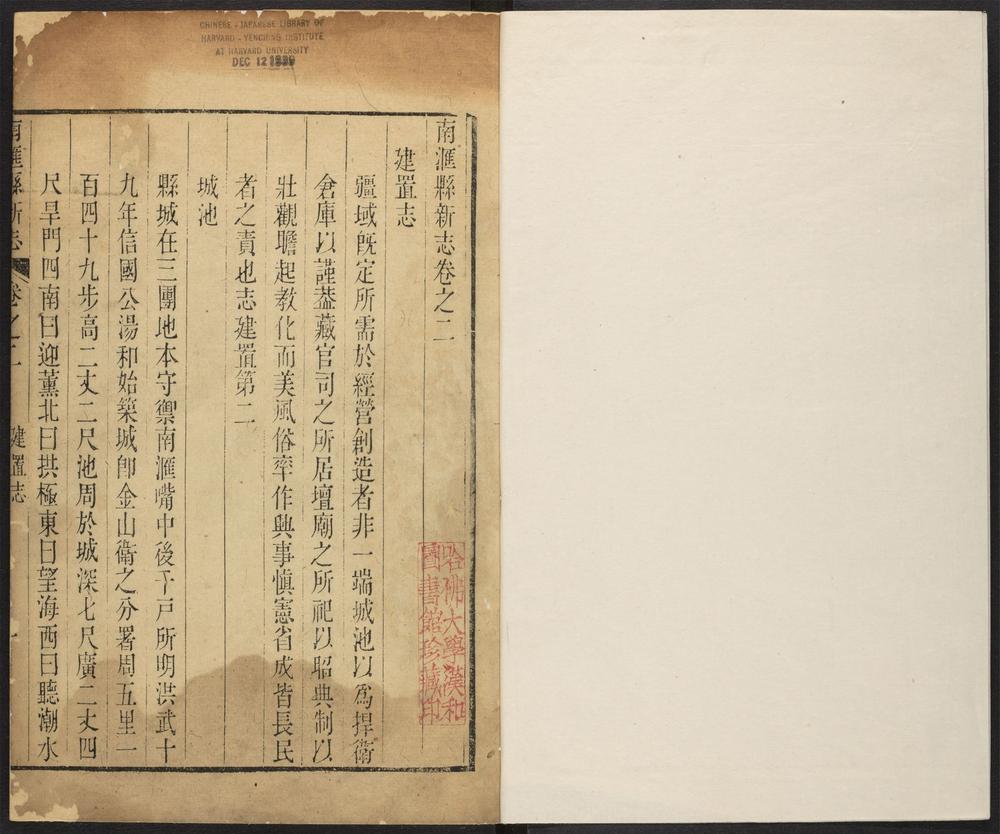 CHINESE - JAPANESE LIBRARY OF
HARVARD - YENCHING INSTITUTE
AT HARVARD UNIVERSITY
DEC 12 1939
南滙縣新志卷之二
建置志
疆域旣定所需於經營創造者非一端城池以爲捍衛
倉庫以謹葢藏官司之所居壇廟之所祀以昭典制以
壯觀瞻起教化而美風俗率作興事愼憲省成皆長民
者之責也志建置第二
城池
縣城在三團地本守禦南滙嘴中後千戶所明洪武十
九年信國公湯和始築城卽金山衛之分署周五里一
百四十九步高二丈二尺池周於城深七尺廣二丈四
尺旱門四南曰迎薰北曰拱極東曰望海西曰聽潮水
南滙縣新志
卷之二
建置志
一
哈佛大學漢和
圖書館珍藏印